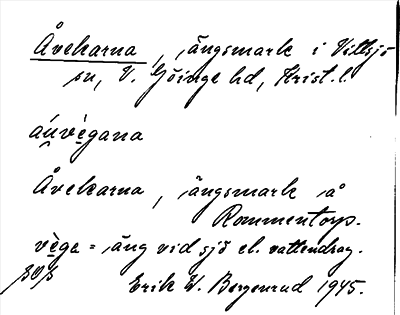 Åvekarna, ängsmark i Vittsjö
sn, V. Göinge hd, Krist. l.
áuvègana
Åvekarna, ängsmark å
Rommentorp.
vège = äng vid sjö el. vattendrag.
Erik W. Bergenrud 1945.